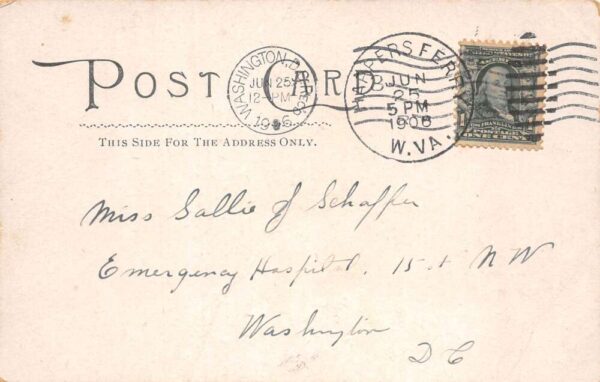 POST CARD
WASHINGTON, D.C.
JUN 25
12-PM
1906
HARPERS FERRY
JUN
25
5 PM
1906
W.VA.
THIS SIDE FOR THE ADDRESS ONLY.
Miss Sallie J Schaffer
Emergency Hospital. 15 st N W
Washington
D C